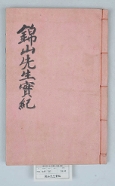 錦山先生實紀